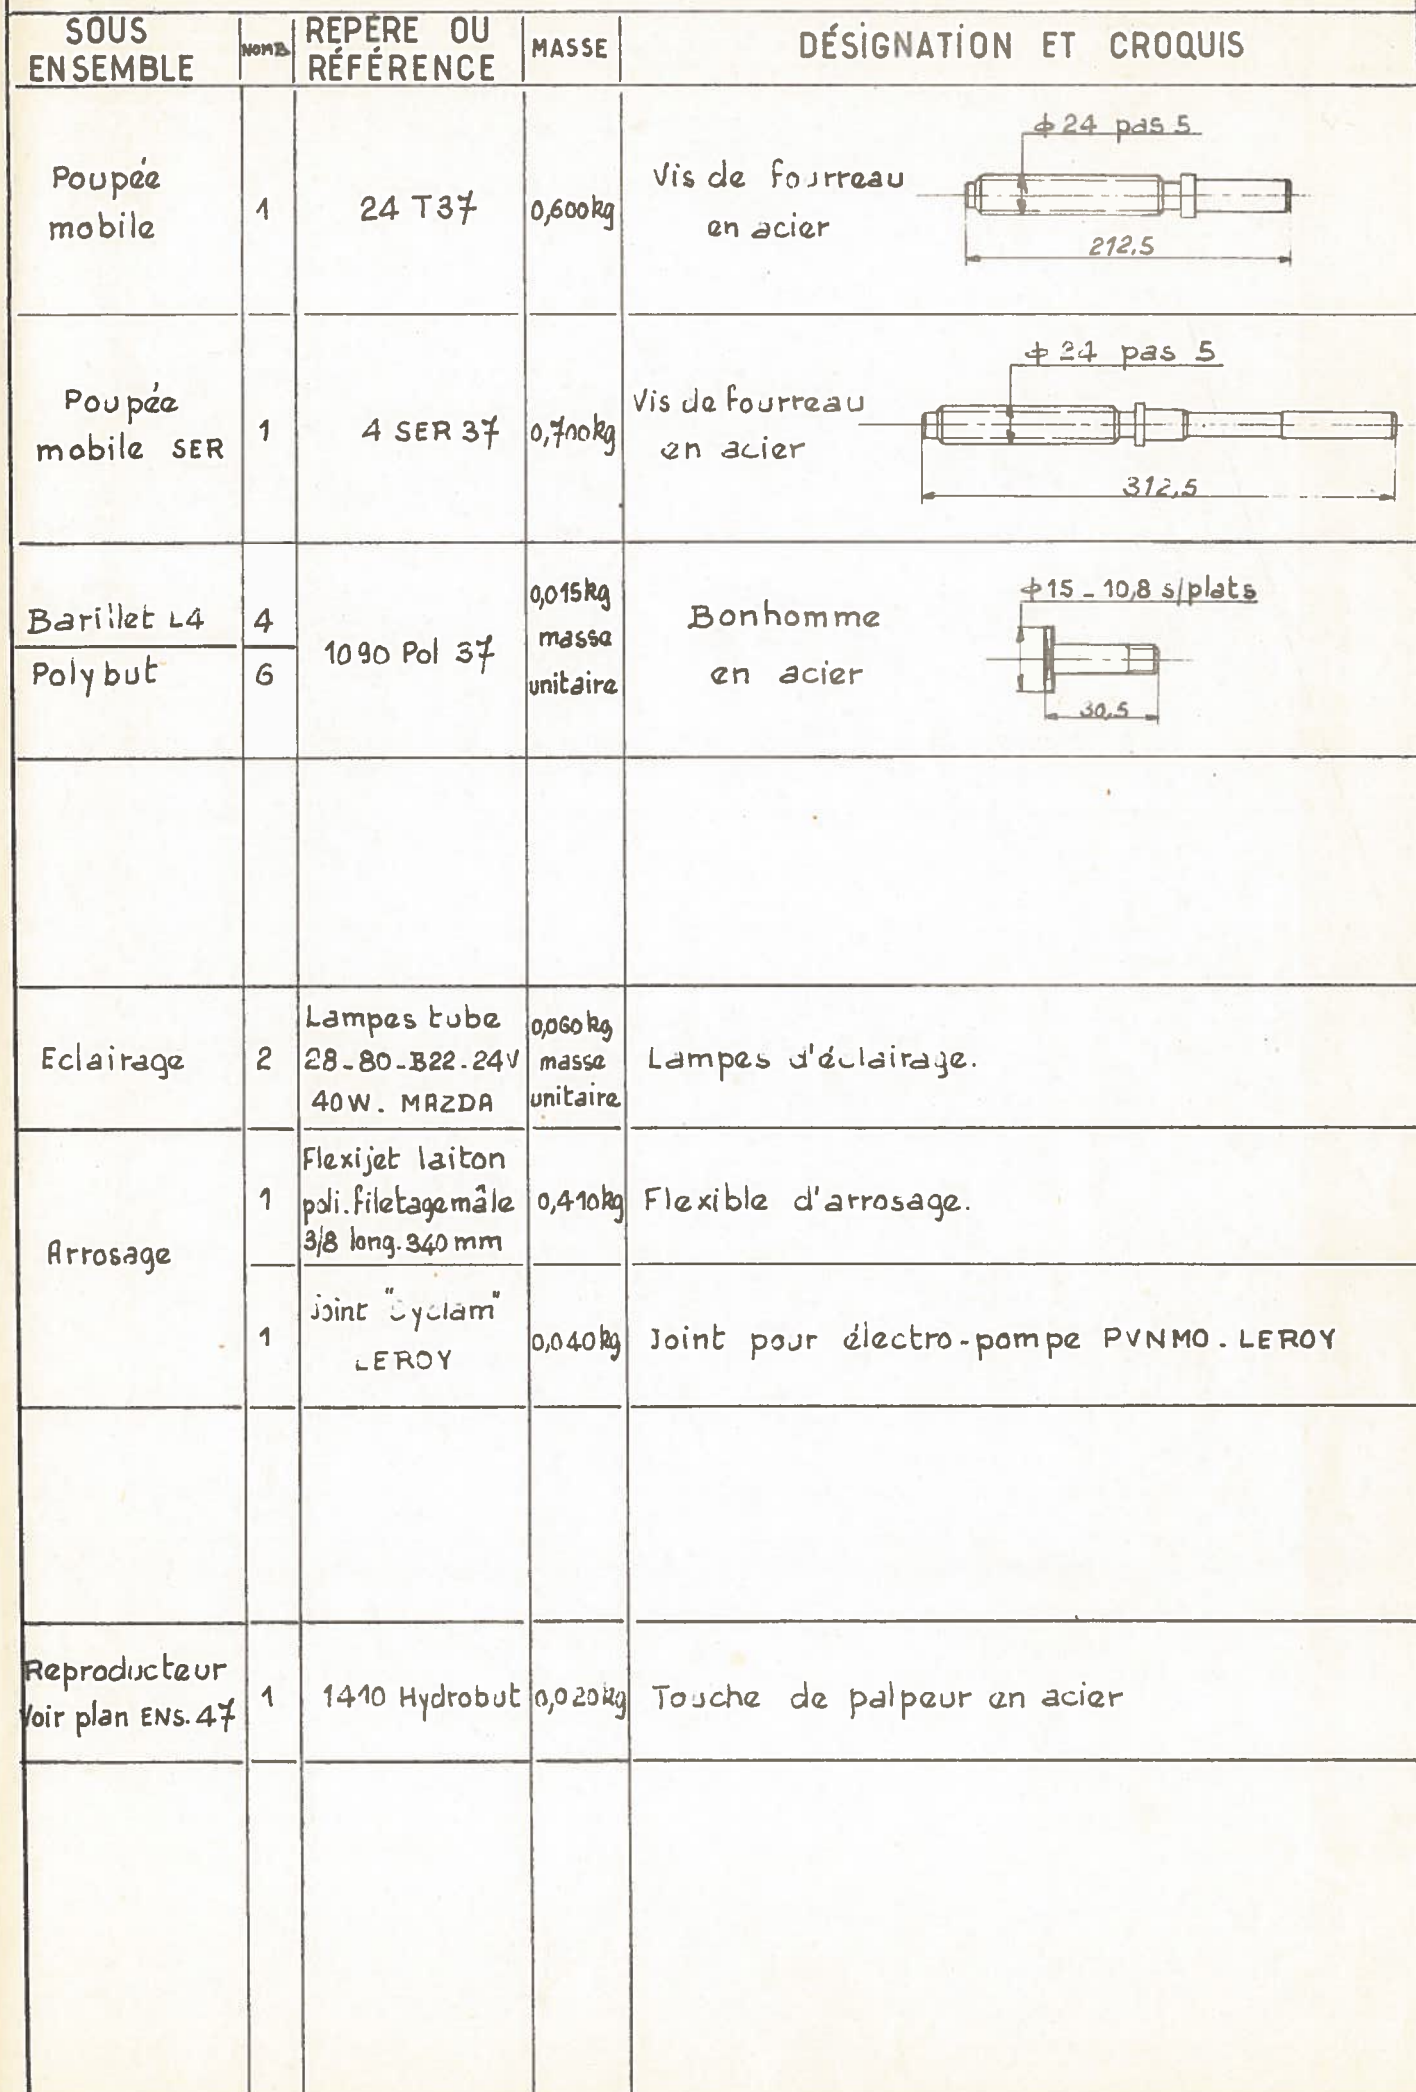 SOUS ENSEMBLE NOMB. REPÈRE OU RÉFÉRENCE MASSE DÉSIGNATION ET CROQUIS
Poupée
mobile
1
24 T37
0,600kg
Vis de fourreau
en acier
ϕ24 pas 5
212,5
Poupée
mobile SER
1
4 SER 37
0,700kg
Vis de fourreau
en acier
ϕ 24 pas 5
312,5
Barillet L4
4
Polybut
6
1090 Pol 37
0,015kg
masse
unitaire
Bonhomme
en acier
ϕ15 - 10,8 s/plats
30,5
Eclairage
2
Lampes tube
28-80-B22-24V
40W. MAZDA
0,060 kg
masse
unitaire
Lampes d'éclairage.
Arrosage
1
Flexijet laiton
poli. filetage mâle
3/8 long. 340 mm
0,410kg
Flexible d'arrosage.
1
Joint "Cyclam"
LEROY
0,040kg
Joint pour électro-pompe PVNMO. LEROY
Reproducteur
Voir plan ENS. 47
1
1410 Hydrobut
0,020kg
Touche de palpeur en acier